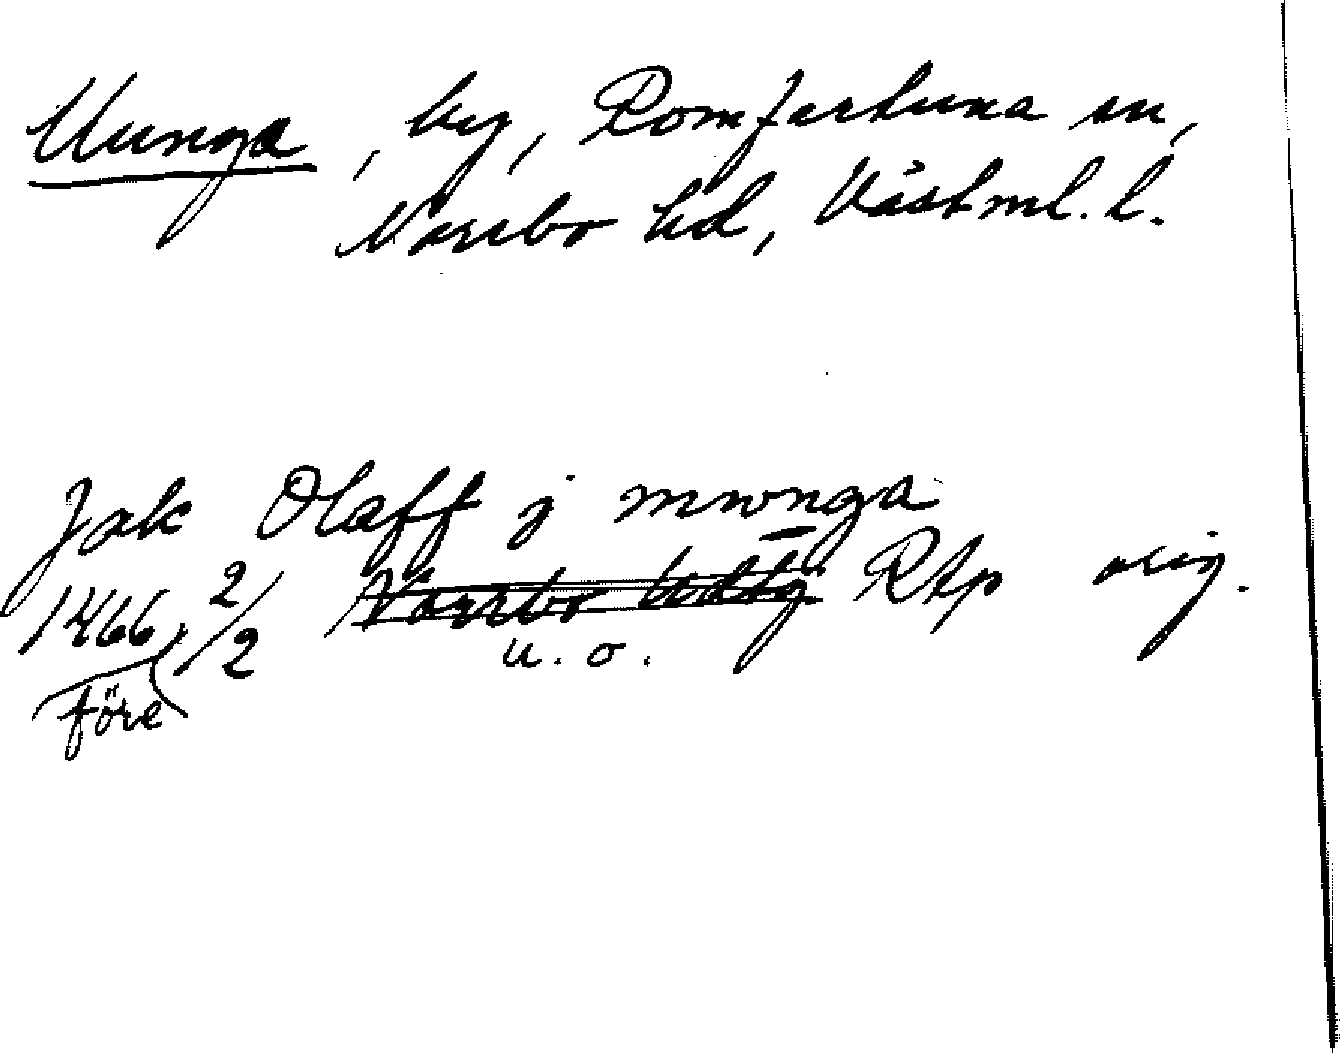 Munga, by, Romfartuna sn,
Norrbo hd, Västml. l.
Jak Olaff j mwnga
1466 2/2 Norrbo hdtg Rap orig.
före u. o.